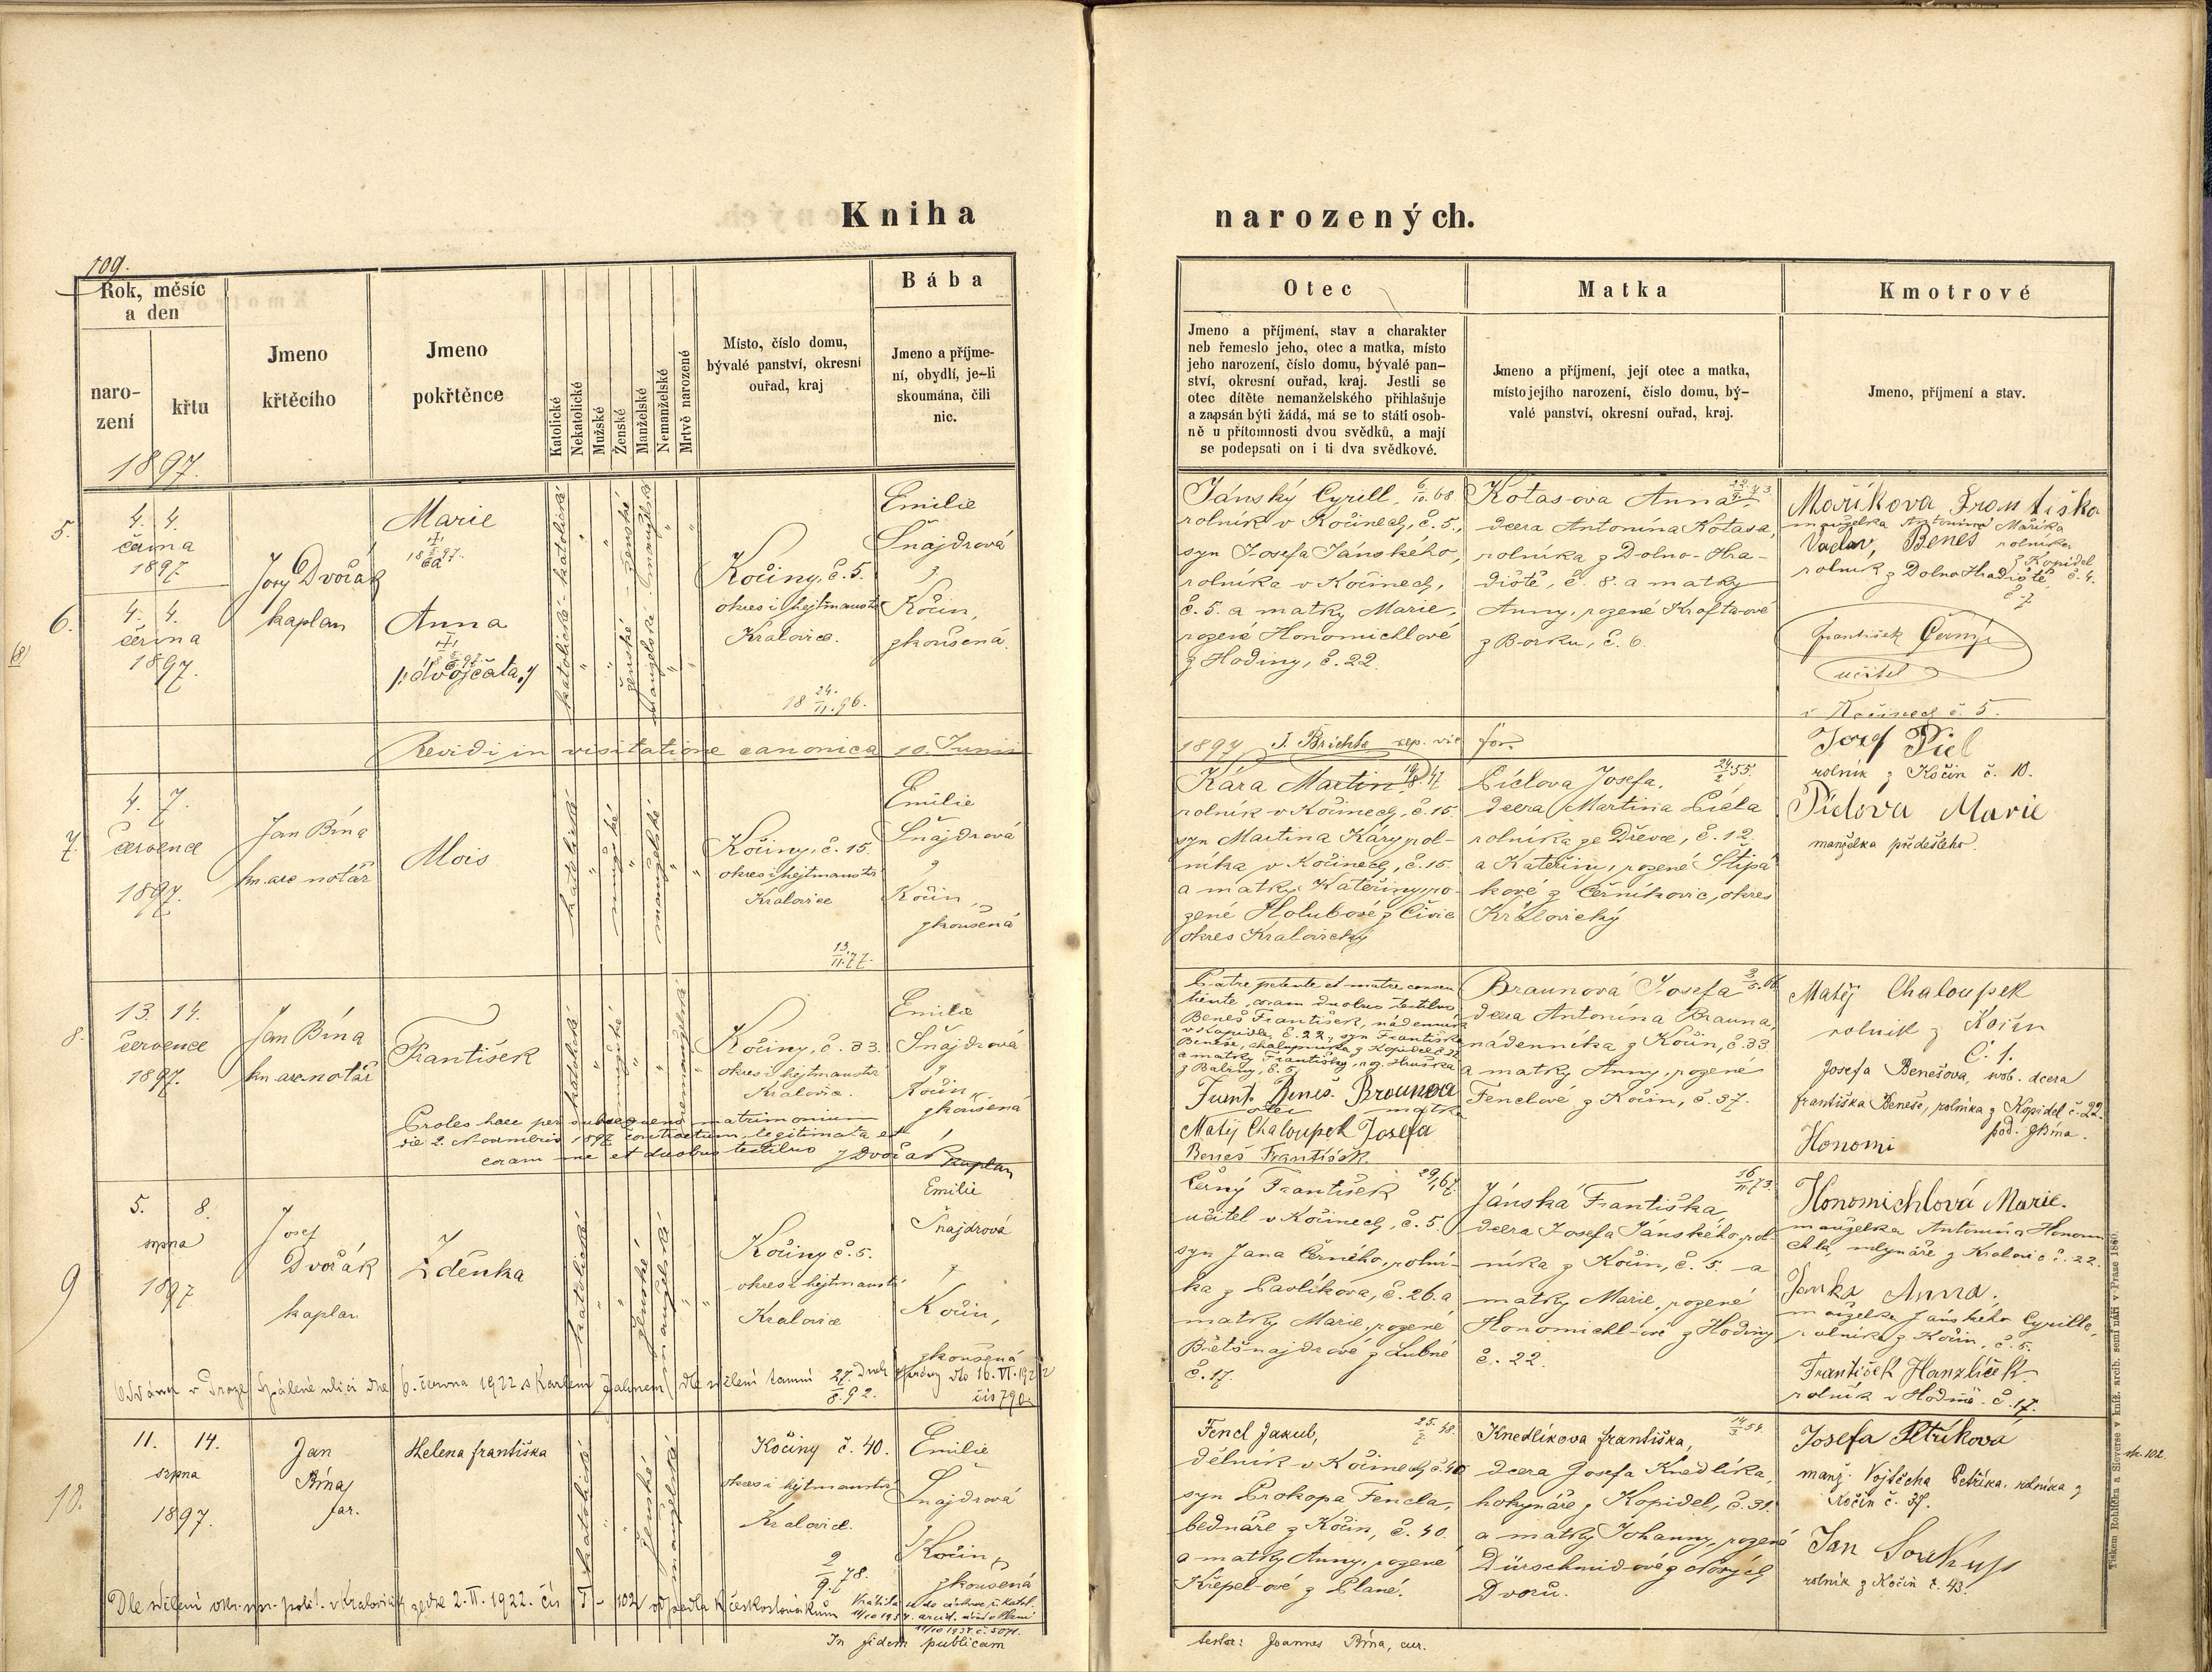 Kniha narozených.
109.
Rok, měsíc
a den
naro-
zení
křtu
1897.
Jmeno
křtěcího
Jmeno
pokřtěnce
Katolické
Nekatolické
Mužské
Ženské
Manželské
Nemanželské
Mrtvě narozené
Místo, číslo domu,
bývalé panství, okresní
ouřad, kraj
Bába
Jmeno a příjme-
ní, obydlí, je-li
skoumána, čili
nic.
Otec
Jmeno a příjmení, stav a charakter
neb řemeslo jeho, otec a matka, místo
jeho narození, číslo domu, bývalé pan-
ství, okresní ouřad, kraj. Jestli se
otec dítěte nemanželského přihlašuje
a zapsán býti žádá, má se to státi osob-
ně u přítomnosti dvou svědků, a mají
se podepsati on i ti dva svědkové.
Matka
Jmeno a příjmení, její otec a matka,
místo jejího narození, číslo domu, bý-
valé panství, okresní ouřad, kraj.
Kmotrové
Jmeno, příjmení a stav.
5.
4. 4.
června
1897.
Josef Dvořák
kaplan
Marie
katolické
ženské
manželské
6.
4. 4.
června
1897.
Anna
/: dvojčata :/
katolické
ženské
manželské
Kočiny, č. 5.
okres i hejtmanství
Kralovice.
18 24/11. 96.
Emilie
Šnajdrová
z
Kočin,
zkoušená.
Jánský Cyrill, 6/10. 68
rolník v Kočinech, č. 5.,
syn Josefa Jánského,
rolníka v Kočinech,
č. 5. a matky Marie,
rozené Honomichlové
z Hodiny, č. 22.
Kotasova Anna
dcera Antonína Kotasa,
rolníka z Dolno-Hra-
diště, č. 8. a matky
Anny, rozené Kraftové
z Borku, č. 6.
Moříkova Františka
manželka Antonína Maříka
rolníka
z Kopidel
č. 4.
Vaclav, Beneš
rolník z Dolno Hradiště
č. 7
František Černý
učitel
v Kočinech č. 5.
Revidi in visitatione canonica 10. Junii
1897 J. Brichta vic. for.
7.
4. 7.
července
1897.
Jan Bína
kn. arc. notář
Alois
katolické
mužské
manželské
Kočiny, č. 15
okres i hejtmanství
Kralovice
13/11. 77.
Emilie
Šnajdrová
z
Kočin,
zkoušená
Kára Martin
rolník v Kočinech, č. 15.
syn Martina Káry, rol-
níka v Kočinech, č. 15.
a matky Kateřiny, ro-
zené Holubové z Čivic
okres Kralovický
Píclova Josefa, 24/2 55.
dcera Martina Pícla
rolníka ze Dřevce, č. 12.
a Kateřiny, rozené Štípa-
kové z Černíkovic, okres
Královický
Josef Picl
rolník z Kočin č. 10.
Piclová Marie
manželka předešlého.
8.
13. 14.
července
1897.
Jan Bína
kn. arc. notář
František
katolické
mužské
nemanželské
Kočiny, č. 33.
okres i hejtmanství
Kralovice.
Emilie
Šnajdrová
z
Kočin,
zkoušená
Proles haec per subsequens matrimonium
die 2. Novembris 1897 contractum, legitimata est
coram me et duobus testibus J Dvořák kaplan
Patre petente et matre consen-
tiente, coram duobus testibus
Beneš František, nádenník
v Kopidle, č. 22., syn Františka
Beneše, chalupníka z Kopidel č. 22
a matky Františky, roz. Hruška
z Baliny, č. 5.
Frant. Beneš. Braunova
otec matka
Matěj Chaloupek Josefa
Beneš František.
Braunová Josefa
dcera Antonína Brauna,
nádenníka z Kočin, č. 33.
a matky Anny, rozené
Fenclové z Kočin, č. 37.
Matěj Chaloupek
rolník z Kočin
č. 1.
Josefa Benešova, svob. dcera
františka Beneše, rolníka z Kopidel č. 22.
pod. JBína.
Honomi
9
5. 8.
srpna
1897
Josef
Dvořák
kaplan
Zdeňka
katolické
ženské
manželské
Kočiny č. 5.
okres i hejtmanství
Kralovice
27/8. 92.
Emilie
Šnajdrová
z
Kočin,
zkoušená
Oddána v Praze Spálené ulici dne 6. června 1922 s Karlem Jahnem dle sdělení tamní Duch. správy dto 16. VI. 1922
čís 790.
Černý František
učitel v Kočinech, č. 5.
syn Jana Černého, rolní-
ka z Pavlíkova, č. 26. a
matky Marie, rozené
Bretšnajdrové z Lubné
č. 17.
Jánská Františka, 16/11. 73.
dcera Josefa Jánského, rol-
níka z Kočin, č. 5. a
matky Marie, rozené
Honomichl-ové z Hodiny
č. 22.
Honomichlová Marie.
manželka Antonína Honomi-
chla, mlynáře z Kralovic č. 22.
Janka Anna.
manželka Jánského Cyrilla,
rolníka z Kočin, č. 5.
František Hanzlíček
rolník v Hodině č. 17.
10.
11. 14.
srpna
1897.
Jan
Bína
far.
Helena františka
katolické
ženské
manželské
Kočiny č. 40.
okres i hejtmanství
Kralovice.
2/9. 78.
Emilie
Šnajdrová
z Kočin,
zkoušená
Dle sdělení okr. spr. polit. v Kralovicích ze dne 2. II. 1922. čís J - 102/ odpadla k československé
Vrátila se do církve ř. katol.
In fidem publicam
Fencl Jakub,
dělník v Kočinech č. 40
syn Prokopa Fencla,
bednáře z Kočin, č. 40.
a matky Anny, rozené
Křepel-ové z Plané.
Knedlíkova františka, 14/3 54.
dcera Josefa Knedlíka,
hokynáře z Kopidel, č. 31
a matky Johanny, rozené
Dürschmid-ové z Nových
Dvorů.
Josefa Petříková
manž. Vojtěcha Petříka, rolníka z
Kočin č. 37.
Jan Soukup
rolník z Kočin č. 43.
str. 102.
testor: Joannes Bína, cur.
Tiskem Rohlíčka a Sieverse v kníž. arcib. semináři v Praze 1880.